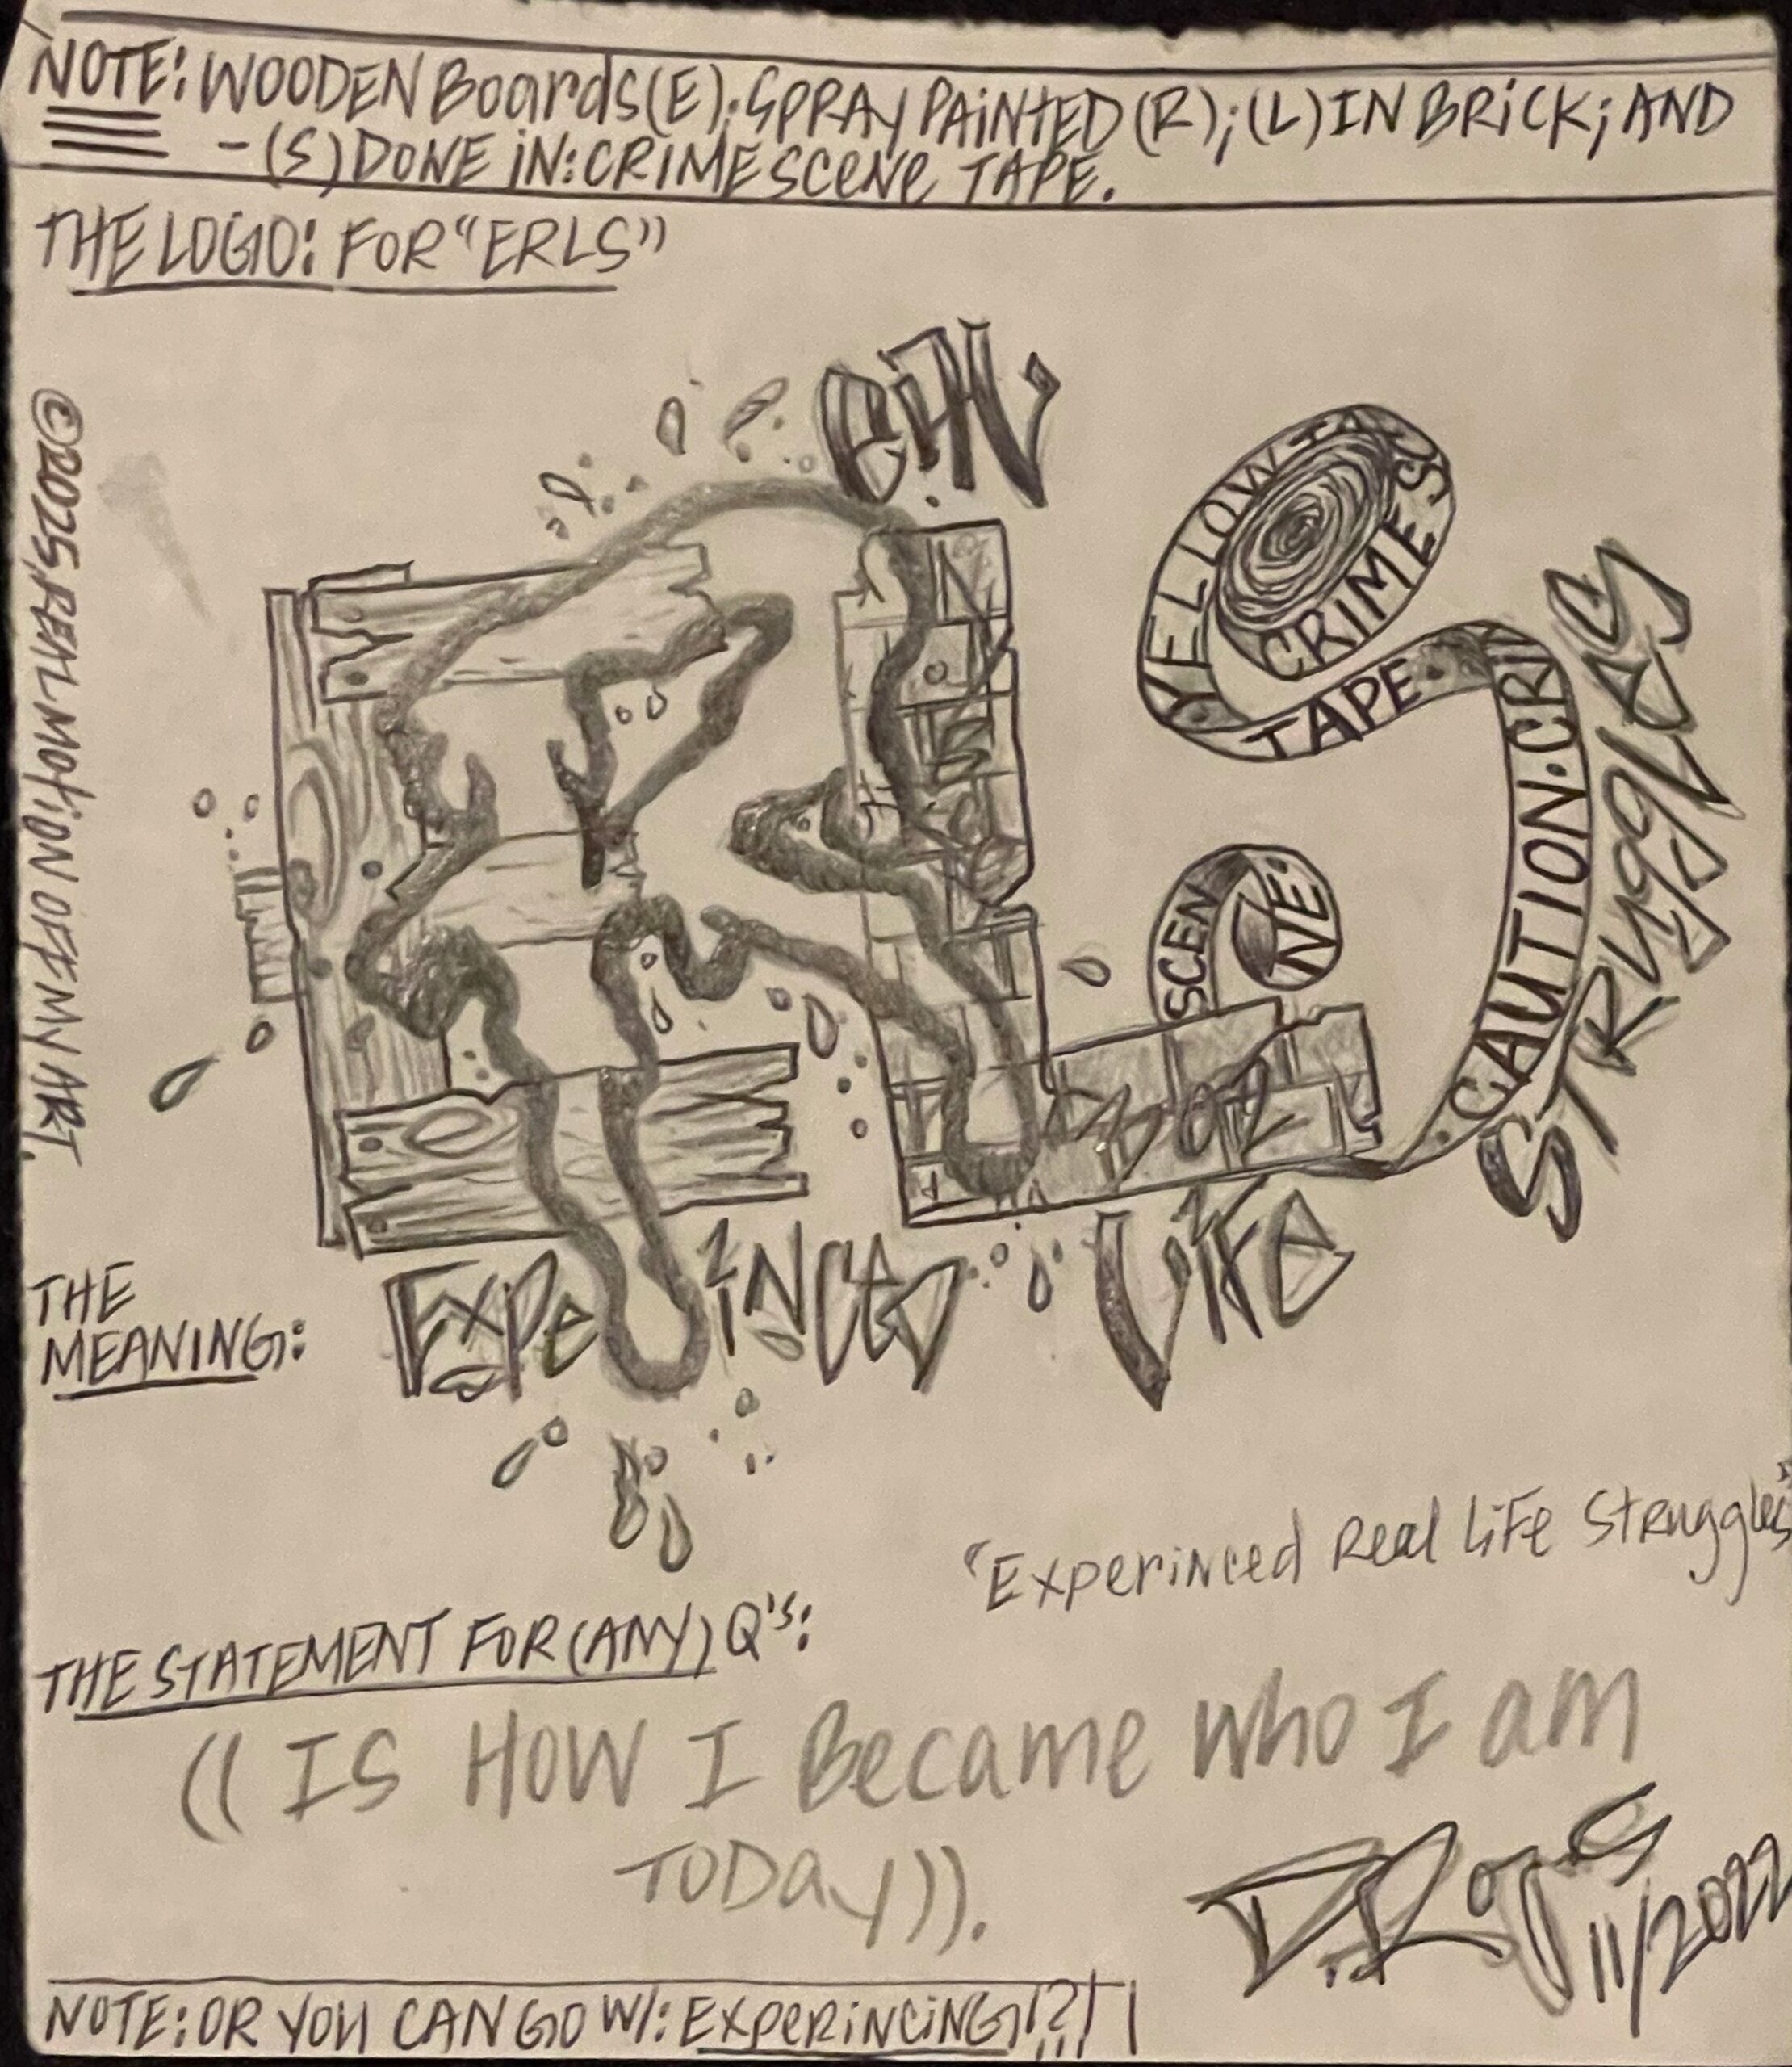 NOTE: WOODEN Boards (E); SPRAY PAINTED (R); (L) IN BRICK; AND
- (S) DONE IN: CRIME SCENE TAPE.
THE LOGO: FOR "ERLS"
©2025, REAL MOTION OFF EMY ART.
YELLOW TA
CRIME SC
TAPE.
CAUTION. CRI
SCEN
NE.
STRUGGLES
THE
MEANING:
LiFe
"Experinced Real LiFe Struggles"
THE STATEMENT FOR (ANY) Q's:
(( IS HOW I Became who I am
TODAY)).
11/2022
NOTE: OR YOU CAN GO W/: EXPERINCING!?!